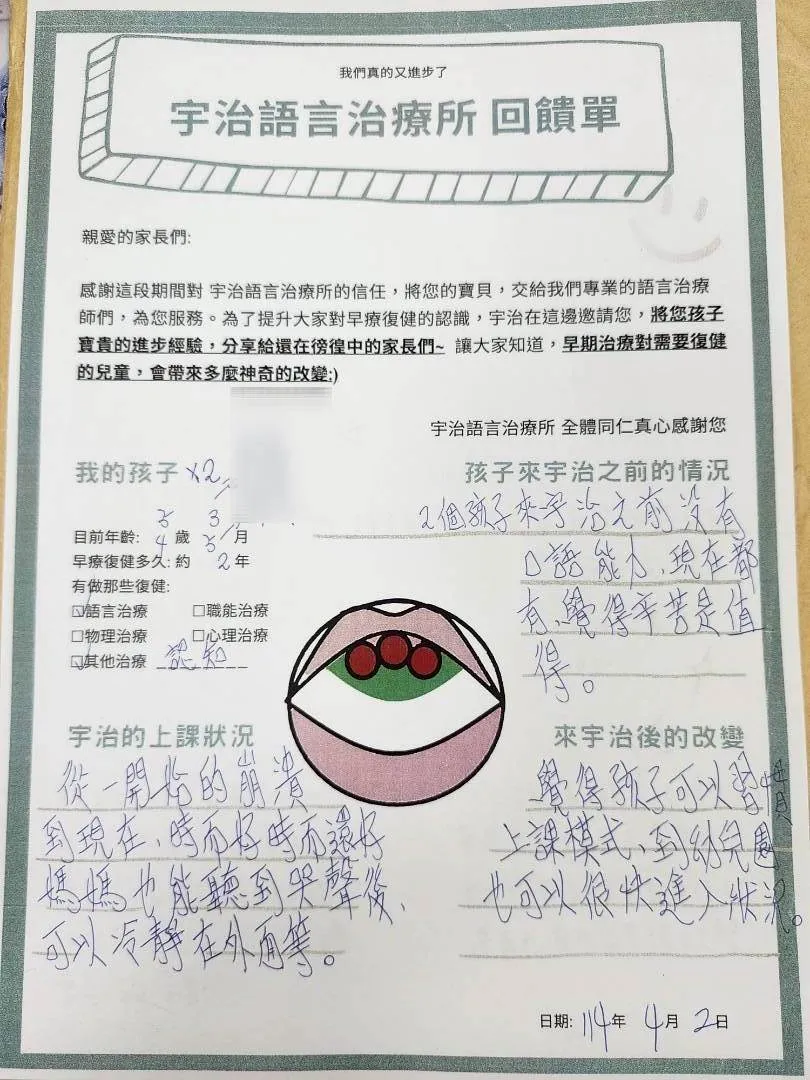 我們真的又進步了
宇治語言治療所 回饋單
親愛的家長們:
感謝這段期間對 宇治語言治療所的信任，將您的寶貝，交給我們專業的語言治療
師們，為您服務。為了提升大家對早療復健的認識，宇治在這邊邀請您，將您孩子
寶貴的進步經驗，分享給還在徬徨中的家長們~ 讓大家知道，早期治療對需要復健
的兒童，會帶來多麼神奇的改變:)
宇治語言治療所 全體同仁真心感謝您
我的孩子 x2
3
目前年齡: 4 歲 月
早療復健多久: 約 2 年
有做那些復健:
☑語言治療 ☐職能治療
☐物理治療 ☐心理治療
☑其他治療 認知
孩子來宇治之前的情況
2個孩子來宇治之前沒有
口語能力、現在都
有、覺得辛苦是值
得。
宇治的上課狀況
從一開始的崩潰
到現在、時而好時而還好
媽媽也能聽到哭聲後、
可以冷靜在外面等。
來宇治後的改變
覺得孩子可以習慣
上課模式、到幼兒園
也可以很快進入狀況。
日期: 114年 4月 2日